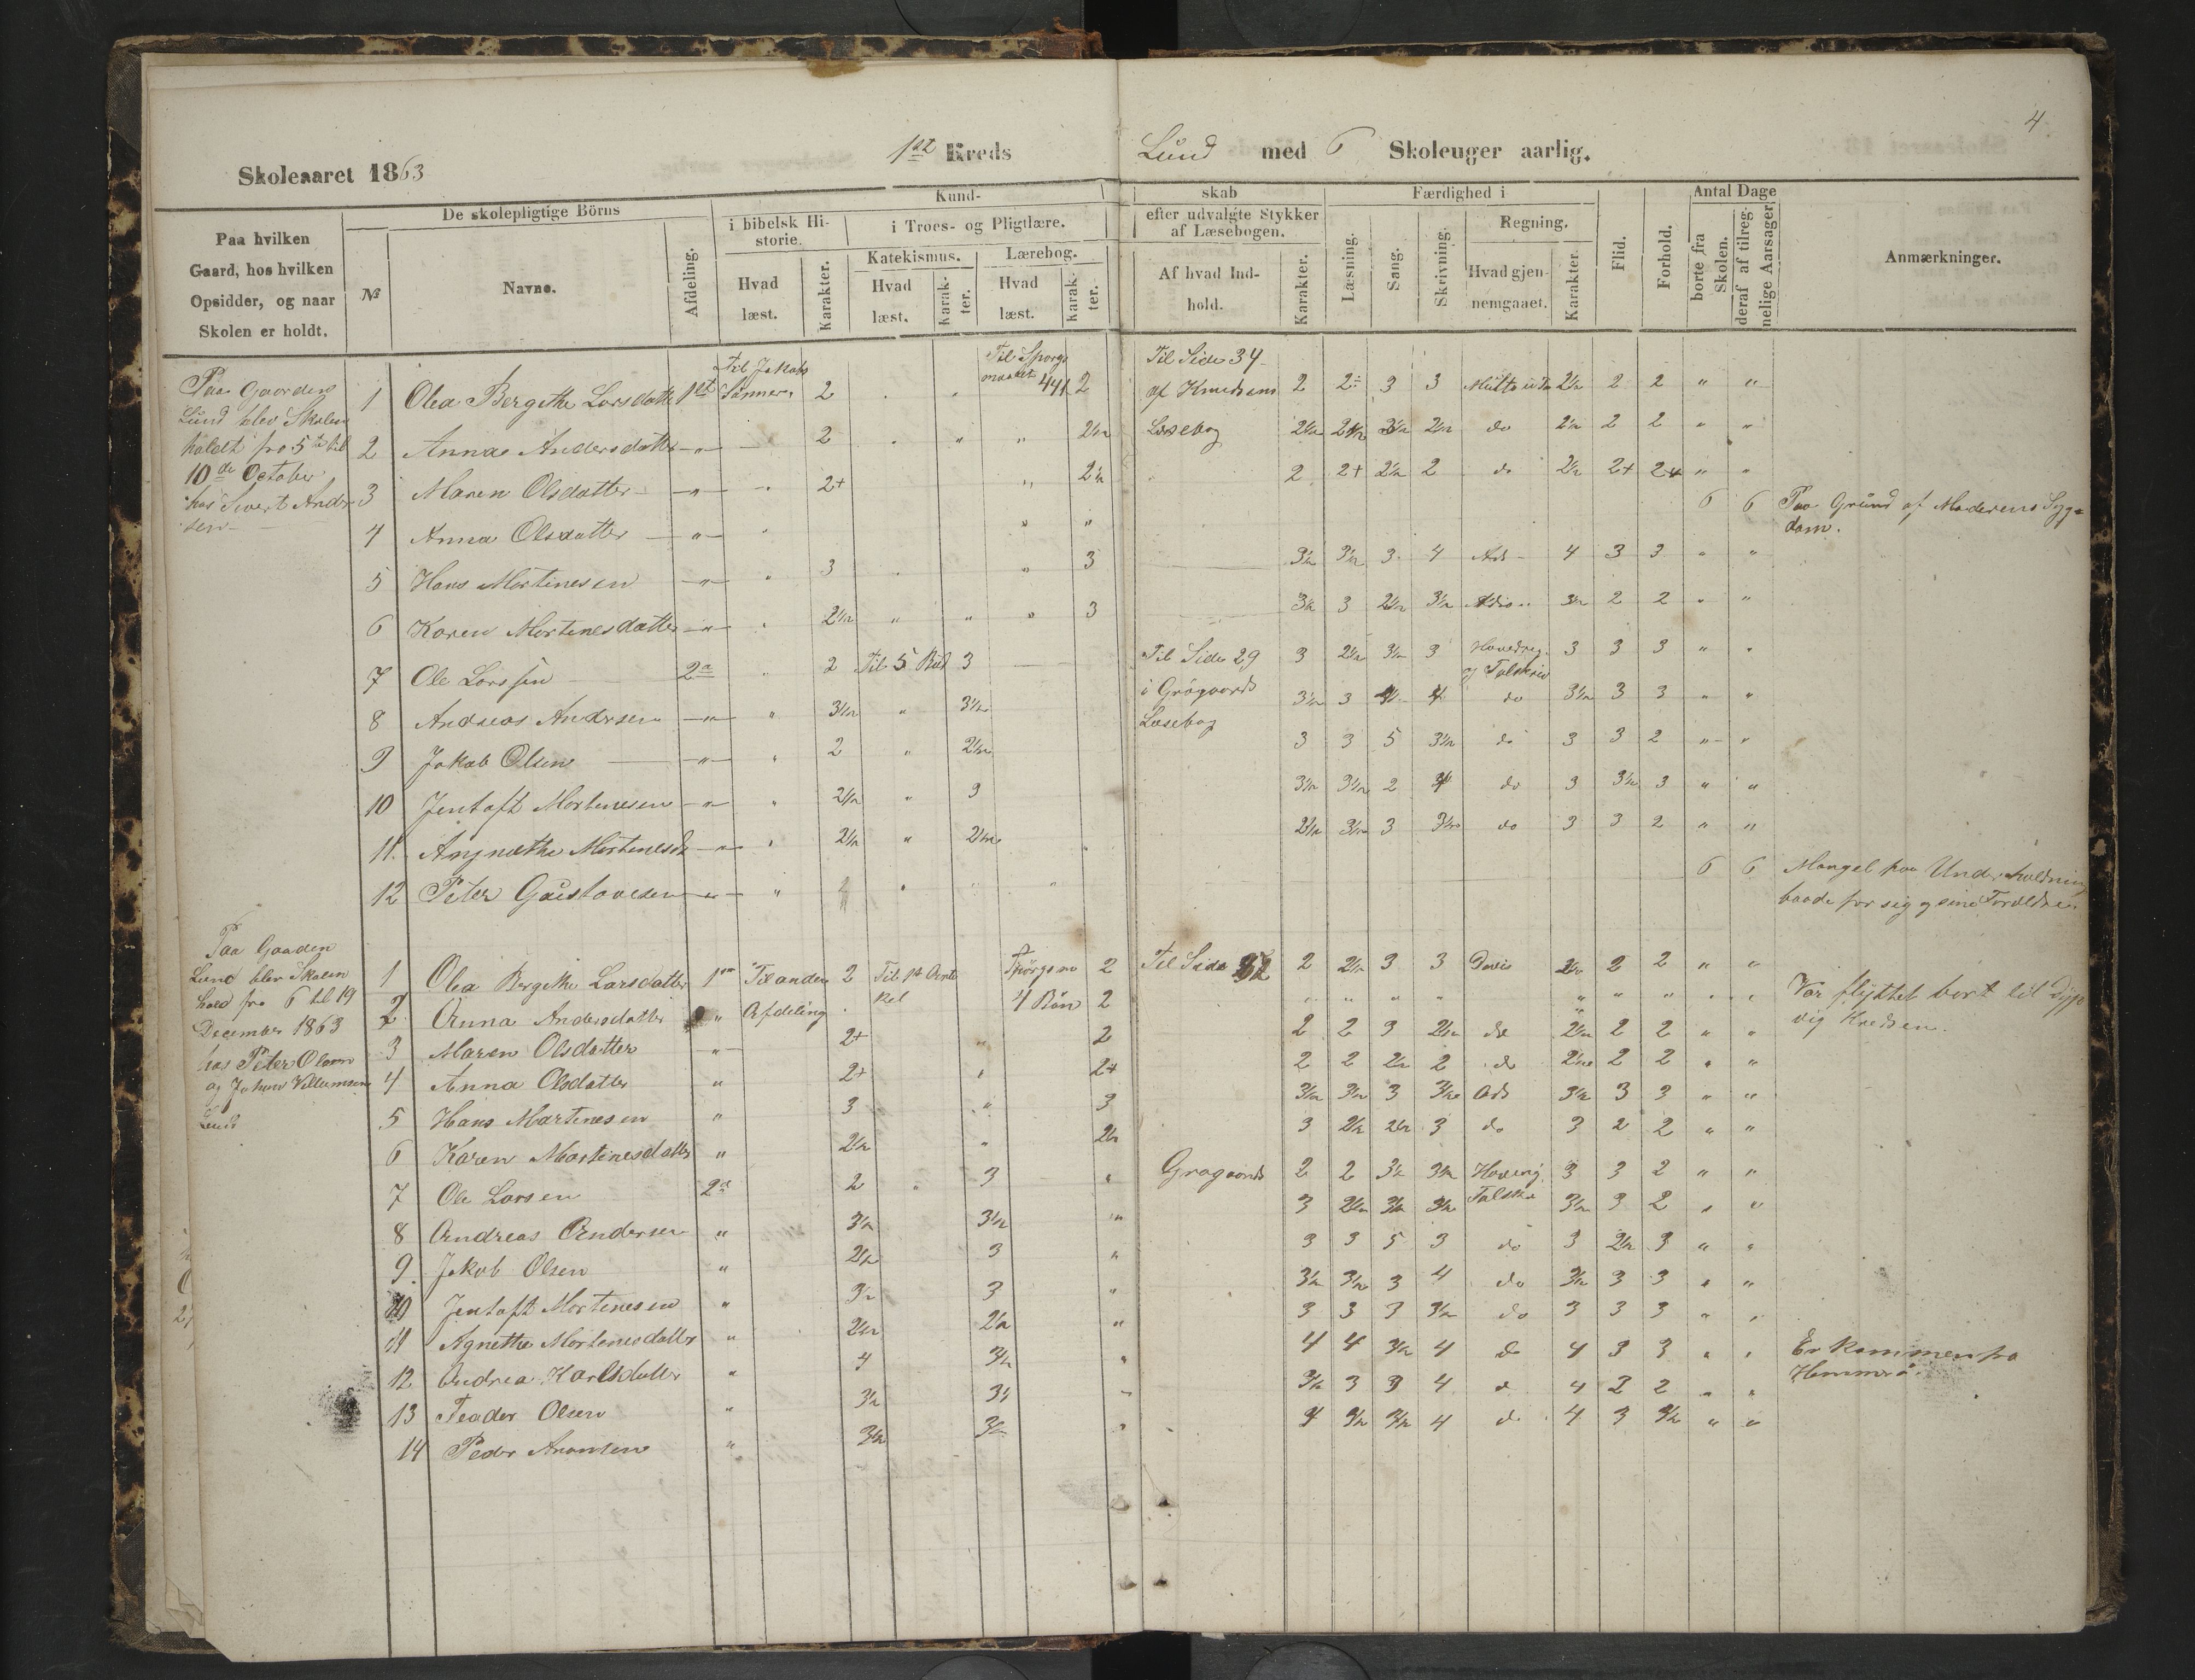 4
Skoleaaret 1863
1st Kreds
Lund med 6 Skoleuger aarlig.
Paa hvilken Gaard, hos hvilken Opsidder, og naar Skolen er holdt.
De skolepligtige Börns
№
Navne.
Afdeling.
Kund-
i bibelsk Hi-
storie.
Hvad læst.
Karakter.
i Troes- og Pligtlære.
Katekismus.
Hvad læst.
karak-
ter.
Lærebog.
Hvad læst.
karak-
ter.
skab
efter udvalgte Stykker
af Læsebogen.
Af hvad Ind-
hold.
Karakter.
Færdighed i
Læsning.
Sang.
Skrivning.
Regning.
Hvad gjen-
nemgaaet.
Karakter.
Flid.
Forhold.
Antal Dage
borte fra Skolen.
deraf af tilreg-
nelige Aarsager.
Anmærkninger.
Paa Gaarden
Lund blev Skolen
holdt fra 5te til
10de October
hos Sivert Ander
sen
1 Olea Bergithe Larsdatter 1st Til Jakobs Sönner. 2 Til Sporgs maalet 441 2 Til Side 34 af Knudsens 2 2÷ 3 3 2 1/2 2 2 " "
2 Anna Andersdatter " 2 " " 2 1/2 Læsebog 2 1/2 2 1/2 3 1/2 2 1/2 do 2 1/2 2 2 " "
3 Maren Olsdatter " 2+ " 2 1/2 2 2+ 2 1/2 2 do 2 1/2 2+ 2+ " "
4 Anna Olsdatter " " " 6 6 Paa Grund af Moderens Syg=
dom.
5 Hans Mortinesen " 3 " 3 3 1/2 3 1/2 3 4 Ad 4 3 3 " "
6 Karen Mortinesdatter " 2 1/2 " " " 3 3 1/2 3 2 1/2 3 1/2 3 1/2 2 2 " "
7 Ole Larssen 2a 2 Til 5 Bud 3 Til Side 29 3 2 1/2 3 1/2 3 Hovedreg. og Talskriv 3 3 3 " "
8 Andreas Andersen " " 3 1/2 " 3 1/2 i Grögaards 3 1/2 3 4 do 3 1/2 3 3 " "
Læsebog
9 Jakob Olsen " " 2 " 2 1/2 3 3 5 3 1/2 do 3 3 2 " "
10 Jentoft Mortinesen " " 2 1/2 " 3 3 1/2 3 1/2 2 4 do 3 3 1/2 3 " "
11. Angnethe Mortinesd " " 2 1/2 " 2 1/2 2 1/2 3 1/2 3 3 1/2 do 3 3 2 " "
12 Peter Gustavesen " " 4 " 6 6 Mangel paa Underholdning
baade for sig og sine Forældre.
Paa Gaaden
Lund blev Skolen
hold fra 6 til 19
December 1863
hos Peter Olsen
og Johan Villumsen
Lund
1 Olea Bergithe Larsdatter 1ste Til anden 2 Til 1st Arti Spörgsm 2 Til Side 32 2 2 1/2 3 3 2 1/2 2 2 " "
2 Anna Andersdatter " Afdeling kel 4 Bön 2 " " " " " " " " " Var flyttet bort til Dyp
vig Kredsen.
3 Maren Olsdatter " 2+ " 2 2 2 3 2 1/2 do 2 1/2 2 2 " "
4 Anna Olsdatter " 2+ " 2+ 2 2 2 1/2 2 do 2 1/2 2 2 " "
5 Hans Martinesen " 3 " 3 3 1/2 3 1/2 3 3 1/2 Ad 3 1/2 3 3 " "
6 Karen Mortinesdatter " 2 1/2 " 2 1/2 3 2 1/2 2 1/2 3 do 3 2 2 " "
7 Ole Larsen 2d 2 " 3 " Grøgaards 2 2 3 1/2 3 1/2 3 3 2 " "
8 Andreas Andersen " 3 1/2 3 1/2 " 3 2 1/2 3 1/2 3 1/2 Talskr 3 1/2 3 2 " "
9. Jakob Olsen " 2 1/2 3 " 3 3 5 3 do 3 2 1/2 3 " "
10 Jentoft Mortinesen " 3 1/2 3 " 3 1/2 3 1/2 3 4 do 3 1/2 3 3 " "
11 Agnethe Mortinesdatter " 2 1/2 2 1/2 " 3 3 3 3 1/2 do 3 3 3 " "
12 Andrea Karlsdatter " 4 3 1/2 " 4 4 3 1/2 4 do 4 3 3 " " Er kommen fra
13 Teador Olsen " 3 1/2 3 1/2 " 3 1/2 3 3 4 d 4 2 2 " "
14 Peder Aronsen " 3 1/2 3 1/2 " 4 3 1/2 3 1/2 4 d 4 3 3 1/2 " "